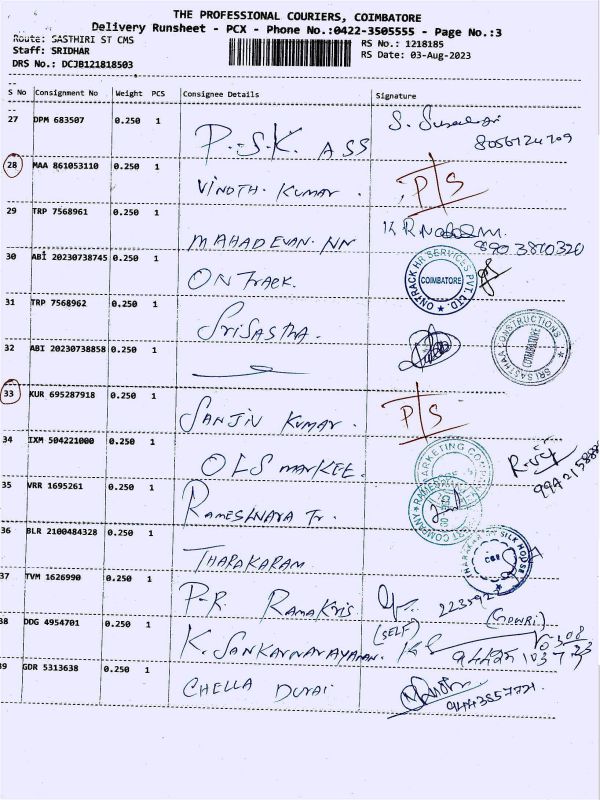 THE PROFESSIONAL COURIERS, COIMBATORE
Delivery Runsheet - PCX - Phone No.:0422-3505555 - Page No.:3
Route: SASTHIRI ST CMS
RS No.: 1218185
Staff: SRIDHAR
RS Date: 03-Aug-2023
DRS No.: DCJB121818503
S No Consignment No Weight PCS Consignee Details Signature
27 DPM 683507 0.250 1 P.S.K. ASS
28 MAA 861053110 0.250 1 VINOTH. KUMAR. P/S
29 TRP 7568961 0.250 1 MAHADEVAN. NN
30 ABI 20230738745 0.250 1 ONTRACK.
ONTRACK HR SERVICES PVT. LTD. COIMBATORE
31 TRP 7568962 0.250 1 SRISASTHA.
SRI SASTHAA CONSTRUCTIONS COIMBATORE
32 ABI 20230738858 0.250 1
33 KUR 695287918 0.250 1 SANJIV KUMAR. P/S
34 IXM 504221000 0.250 1 OLS MARKEE.
MARKETING
35 VRR 1695261 0.250 1 RAMESHWARA Tr.
COMPANY
36 BLR 2100484328 0.250 1 THARAKARAM
SILK HOUSE CBE
37 TVM 1626990 0.250 1 P-R. RAMAKRIS
38 DDG 4954701 0.250 1 K. SANKARNARAYANAN. (SELF)
39 GDR 5313638 0.250 1 CHELLA DURAI